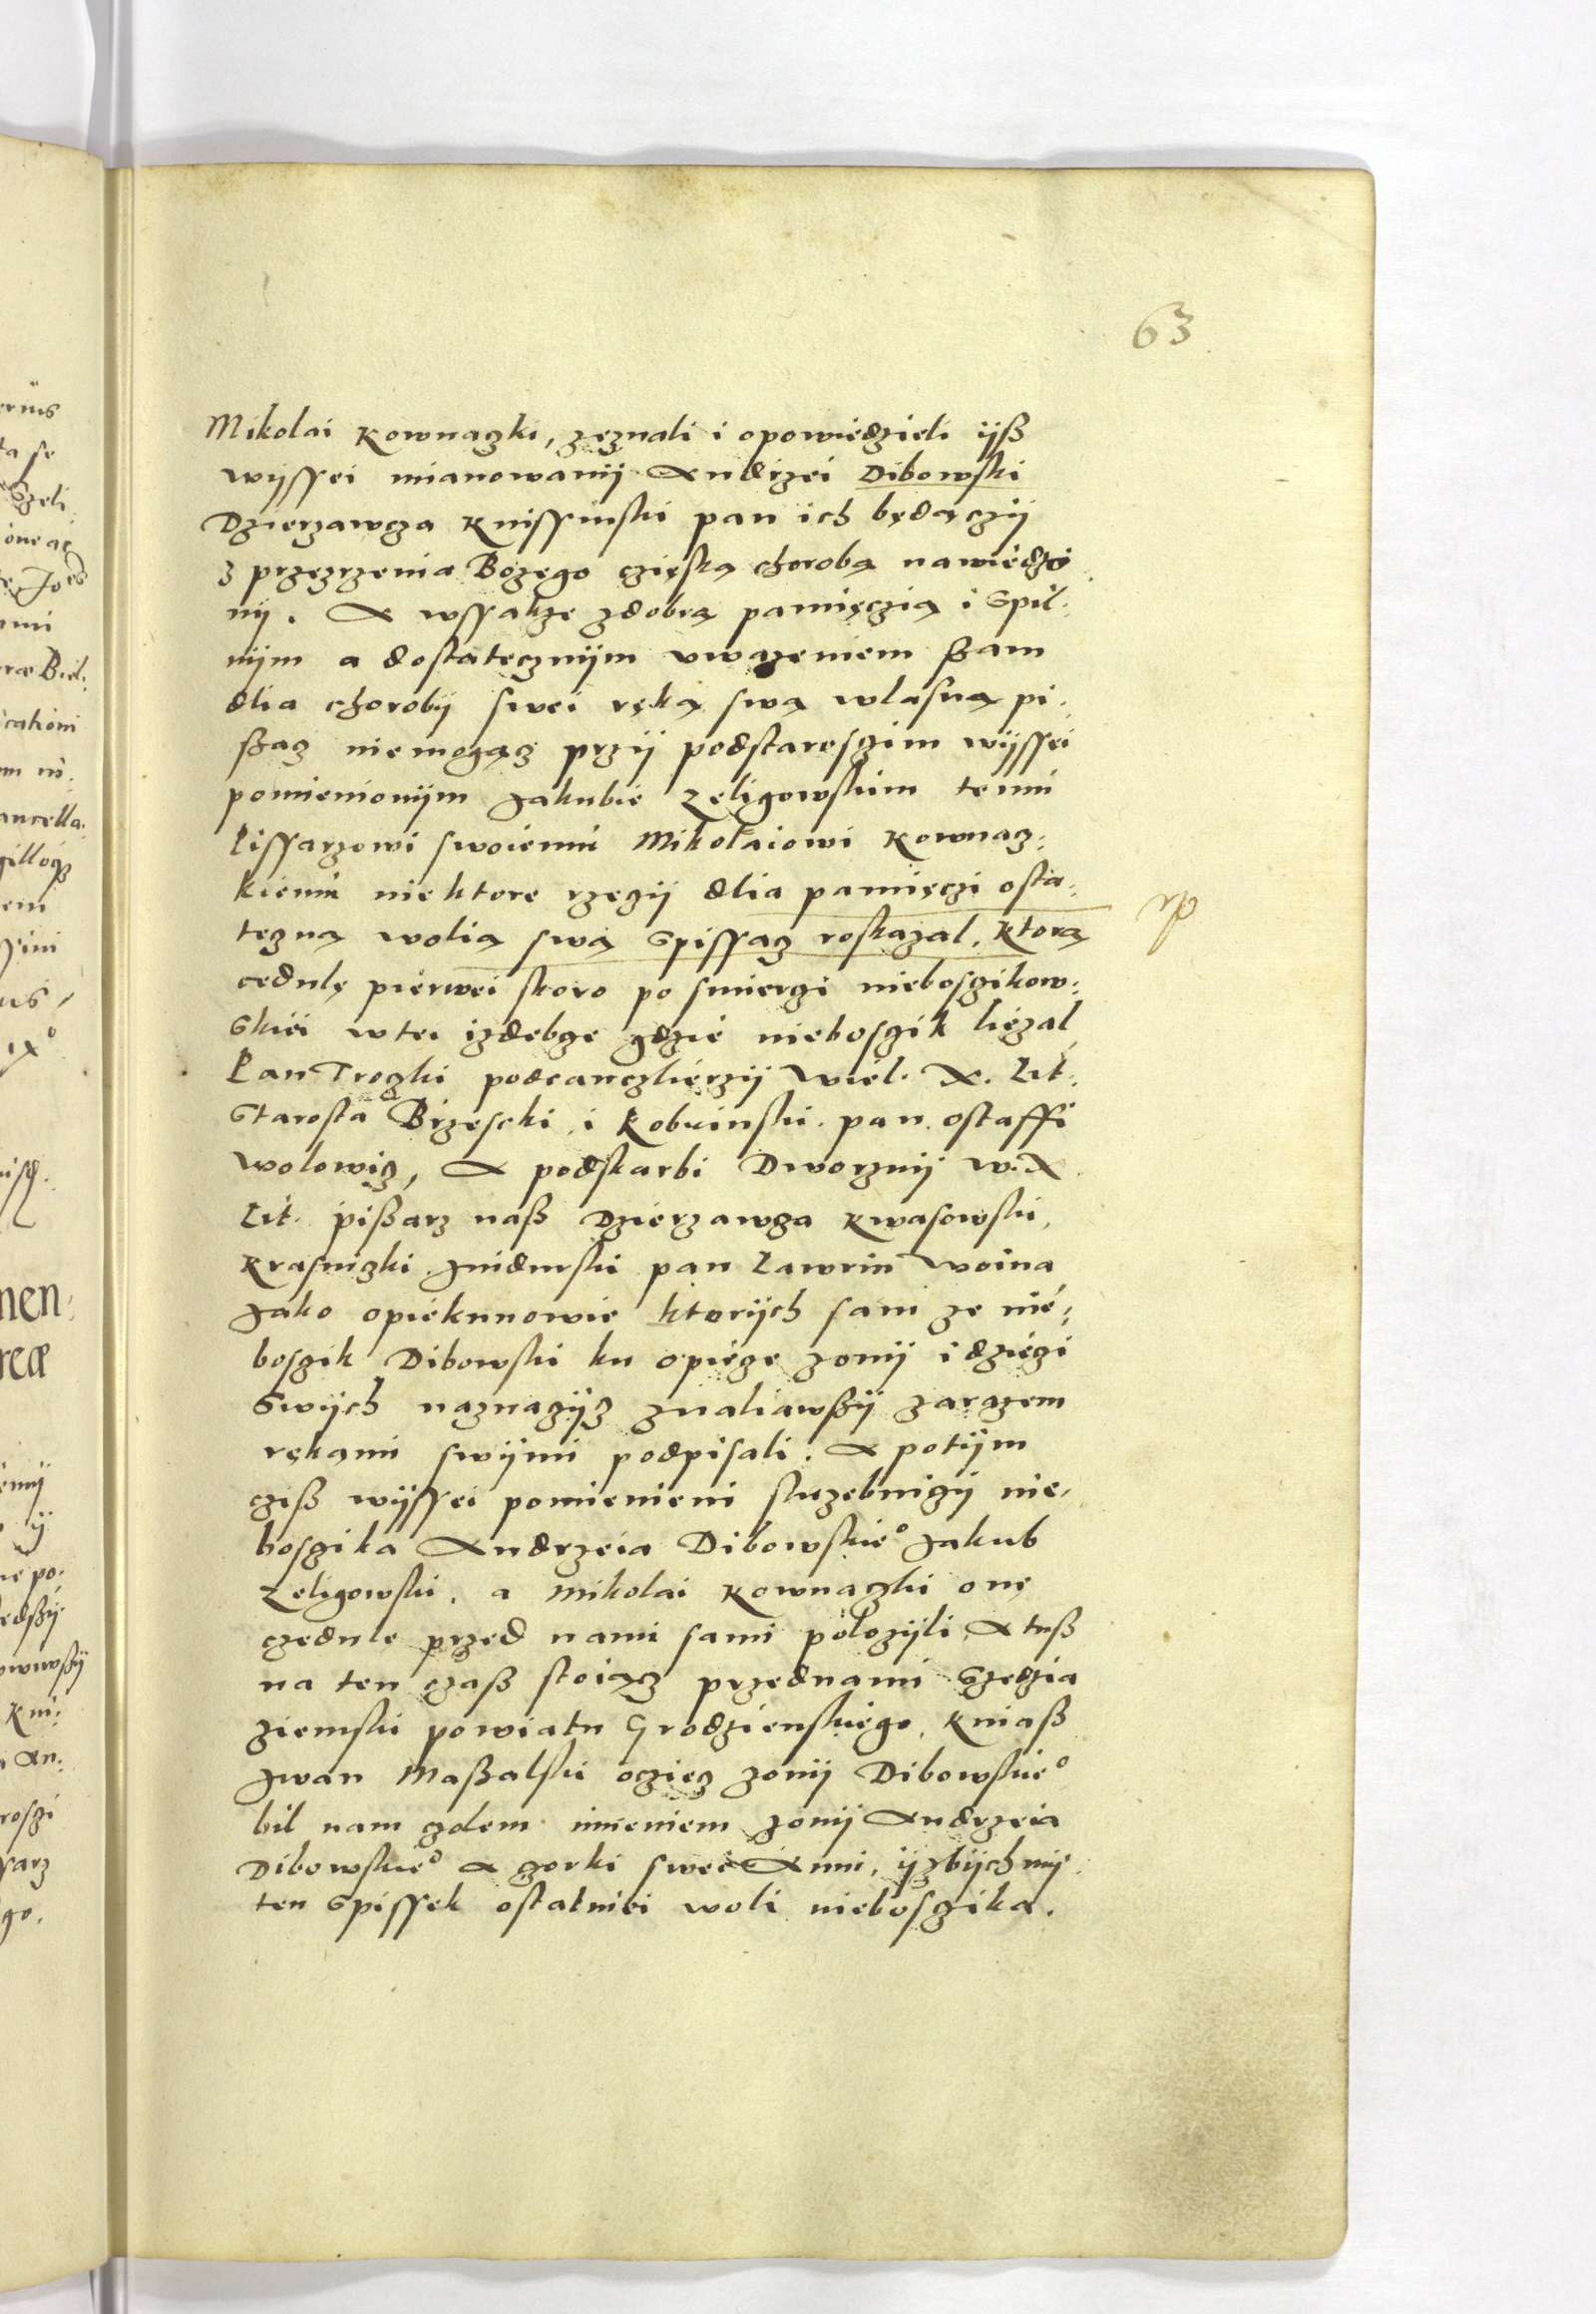 63
Mikolai Kownaczki, zeznali i opowiedzieli ijß
wyssei mianowanij Andrzei Dibowski
Dzierzawcza Knissinski pan ich będączij
z przezrzenia Bozego czięską chorobą nawiedzo
nij. A wssakze zdobrą pamięczią i spil:
nijm a dostatecznijm uwazeniem ßam
dlia chorobij swei ręką swą wlasną pi:
ßacz niemogącz przij podstaroszim wijssei
pomienionijm Jakubie Zeligowskim temu
Pissarzowi swoiemu Mikolaiowi Kownacz:
kiemu niektore rzeczij dlia pamięczi osta:
teczną wolią swą spissacz roskazal, Ktorą
cedulę pierwei skoro po smierczi nieboszikow:
skiei wtei izdebcze gdzie nieboszik liezal
Pan Troczki podcanczlierzij Wiel. X. Lit:
Starosta Brzescki i Kobrinski pan ostaffi
wolowicz, A podskarbi Dworznij W. X
Lit. pißarz naß Dzierzawcza Kwasowski,
Krasniczki Jnidurski pan Lawrin Woina
Jako opiekunowie ktorijch sam ze nie:
boszik Dibowski ku opiecze zonij i dzieczi
swijch naznaczijcz znaliawßij zarazem
rękami swijmi podpisali. A potijm
cziß wijssei pomienieni sluzebniczij nie:
boszika Andrzeia Dibowskieº Jakub
Zeligowski, a Mikolai Kownaczki onę
czedule przed nami sami polozijli, A tuß
na ten czaß stoiącz przednami Szedzia
ziemski powiatu Grodzienskiego, Kniaß
Jwan Maßalski oczięcz zonij Dibowskieº
bil nam czolem imieniem zonij Andrzeia
Dibowskieº a czorki swei Anni, ijzbijchmij
ten spissek ostatniei woli nieboszika.